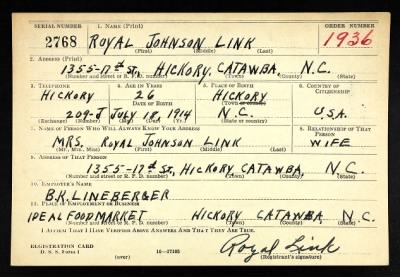 SERIAL NUMBER 1. NAME (Print) ORDER NUMBER
2768 ROYAL JOHNSON LINK 1936
(First) (Middle) (Last)
2. ADDRESS (Print)
1355-17th St, HICKORY, CATAWBA, N.C.
(Number and street or R. F. D. number) (Town) (County) (State)
3. TELEPHONE 4. AGE IN YEARS 5. PLACE OF BIRTH 6. COUNTRY OF CITIZENSHIP
HICKORY 26 HICKORY
DATE OF BIRTH (Town or county)
209-J JULY 18 1914 N.C. U.S.A.
(Exchange) (Number) (Mo.) (Day) (Yr.) (State or country)
7. NAME OF PERSON WHO WILL ALWAYS KNOW YOUR ADDRESS 8. RELATIONSHIP OF THAT PERSON
MRS. ROYAL JOHNSON LINK WIFE
(Mr., Mrs., Miss) (First) (Middle) (Last)
9. ADDRESS OF THAT PERSON
1355-17th St, HICKORY CATAWBA, N.C.
(Number and street or R. F. D. number) (Town) (County) (State)
10. EMPLOYER'S NAME
B.K. LINEBERGER
11. PLACE OF EMPLOYMENT OR BUSINESS
IDEAL FOOD MARKET HICKORY CATAWBA N.C.
(Number and street or R. F. D. number) (Town) (County) (State)
I AFFIRM THAT I HAVE VERIFIED ABOVE ANSWERS AND THAT THEY ARE TRUE.
REGISTRATION CARD
D. S. S. Form 1 (over) 16-17105
Royal Link
(Registrant's signature)